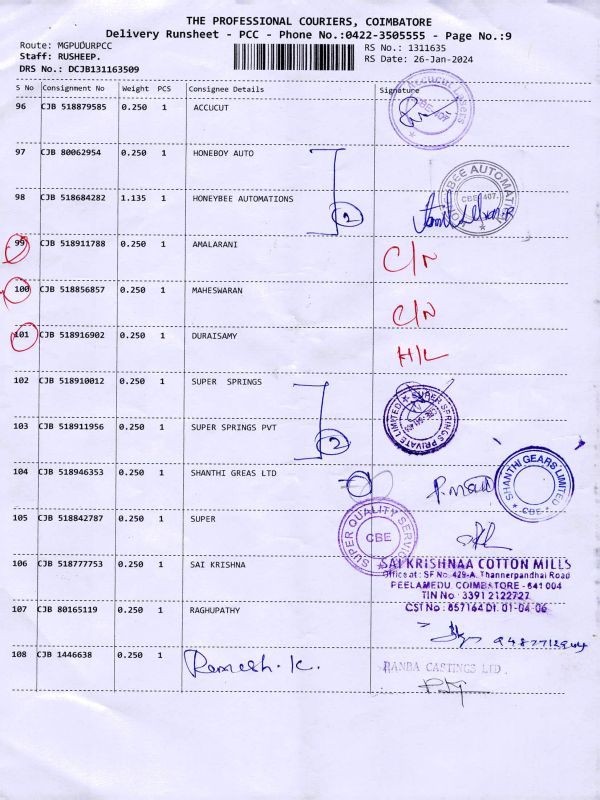 THE PROFESSIONAL COURIERS, COIMBATORE
Delivery Runsheet - PCC - Phone No.:0422-3505555 - Page No.:9
Route: MGPUDURPCC
RS No.: 1311635
Staff: RUSHEEP.
RS Date: 26-Jan-2024
DRS No.: DCJB131163509
S No Consignment No Weight PCS Consignee Details Signature
96 CJB 518879585 0.250 1 ACCUCUT
CBE
97 CJB 80062954 0.250 1 HONEBOY AUTO
98 CJB 518684282 1.135 1 HONEYBEE AUTOMATIONS 2
99 CJB 518911788 0.250 1 AMALARANI C/N
100 CJB 518856857 0.250 1 MAHESWARAN C/N
101 CJB 518916902 0.250 1 DURAISAMY H/L
102 CJB 518910012 0.250 1 SUPER SPRINGS
SUPER SPRINGS PRIVATE LIMITED
103 CJB 518911956 0.250 1 SUPER SPRINGS PVT 2
104 CJB 518946353 0.250 1 SHANTHI GREAS LTD
SHANTHI GEARS LIMITED
CBE
105 CJB 518842787 0.250 1 SUPER
SUPER QUALITY SERVICE
CBE
106 CJB 518777753 0.250 1 SAI KRISHNA
SAI KRISHNAA COTTON MILLS
Office at : SF No. 429-A, Thannerpandhai Road
PEELAMEDU, COIMBATORE - 641 004
TIN No : 33912122727
CST No : 657164 Dt. 01-04-06
107 CJB 80165119 0.250 1 RAGHUPATHY
108 CJB 1446638 0.250 1 Ramesh. K.
RANBA CASTINGS LTD.